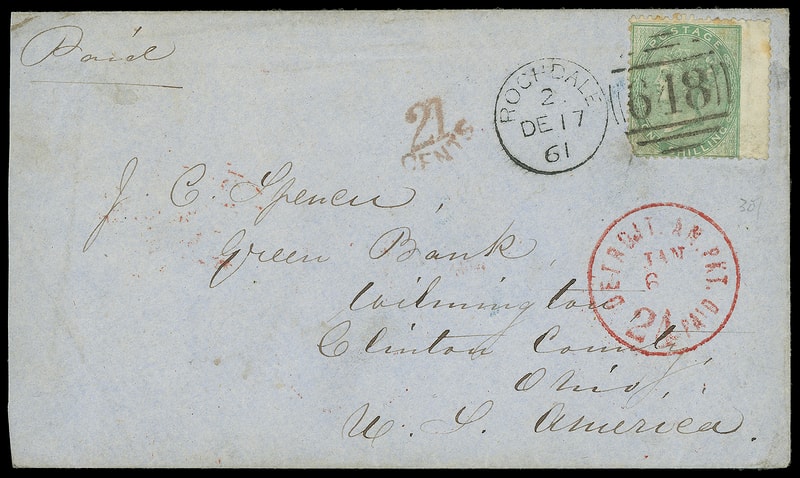 Paid
21
CENTS
ROCHDALE
2
DE 17
61
POSTAGE
648
SHILLING
J. C. Spencer,
Green Bank,
Wilmington
Clinton County,
Ohio,
U. S. America.
301
DETROIT. AM. PKT.
JAN
6
21
PAID